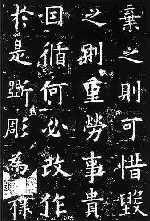 棄之則可惜毀
之則重勞事貴
因循何必改作
於是斵彫為樸